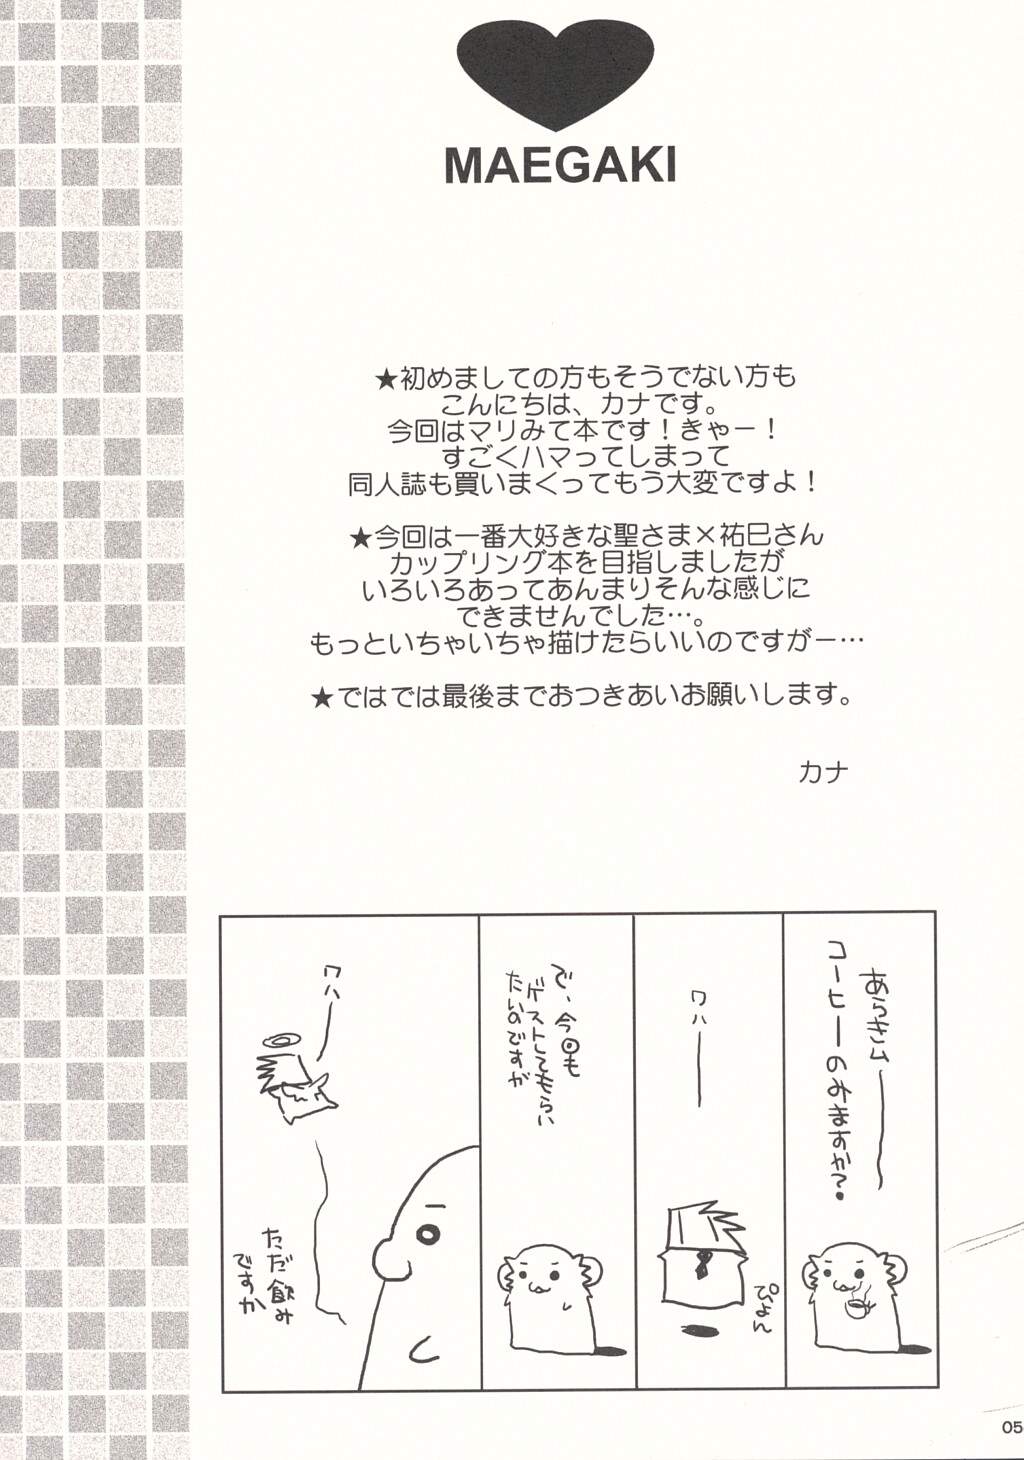 MAEGAKI
★初めましての方もそうでない方も
こんにちは、カナです。
今回はマリみて本です！きゃー！
すごくハマってしまって
同人誌も買いまくってもう大変ですよ！
★今回は一番大好きな聖さま×祐巳さん
カップリング本を目指しましたが
いろいろあってあんまりそんな感じに
できませんでした…。
もっといちゃいちゃ描けたらいいのですがー…
★ではでは最後までおつきあいお願いします。
カナ
あらきム――
コーヒーのみますか？
ワハ――
ぴょん
で、今回も
ゲストしてもらい
たいのですが
ワハ――
ただ飲み
ですか
05